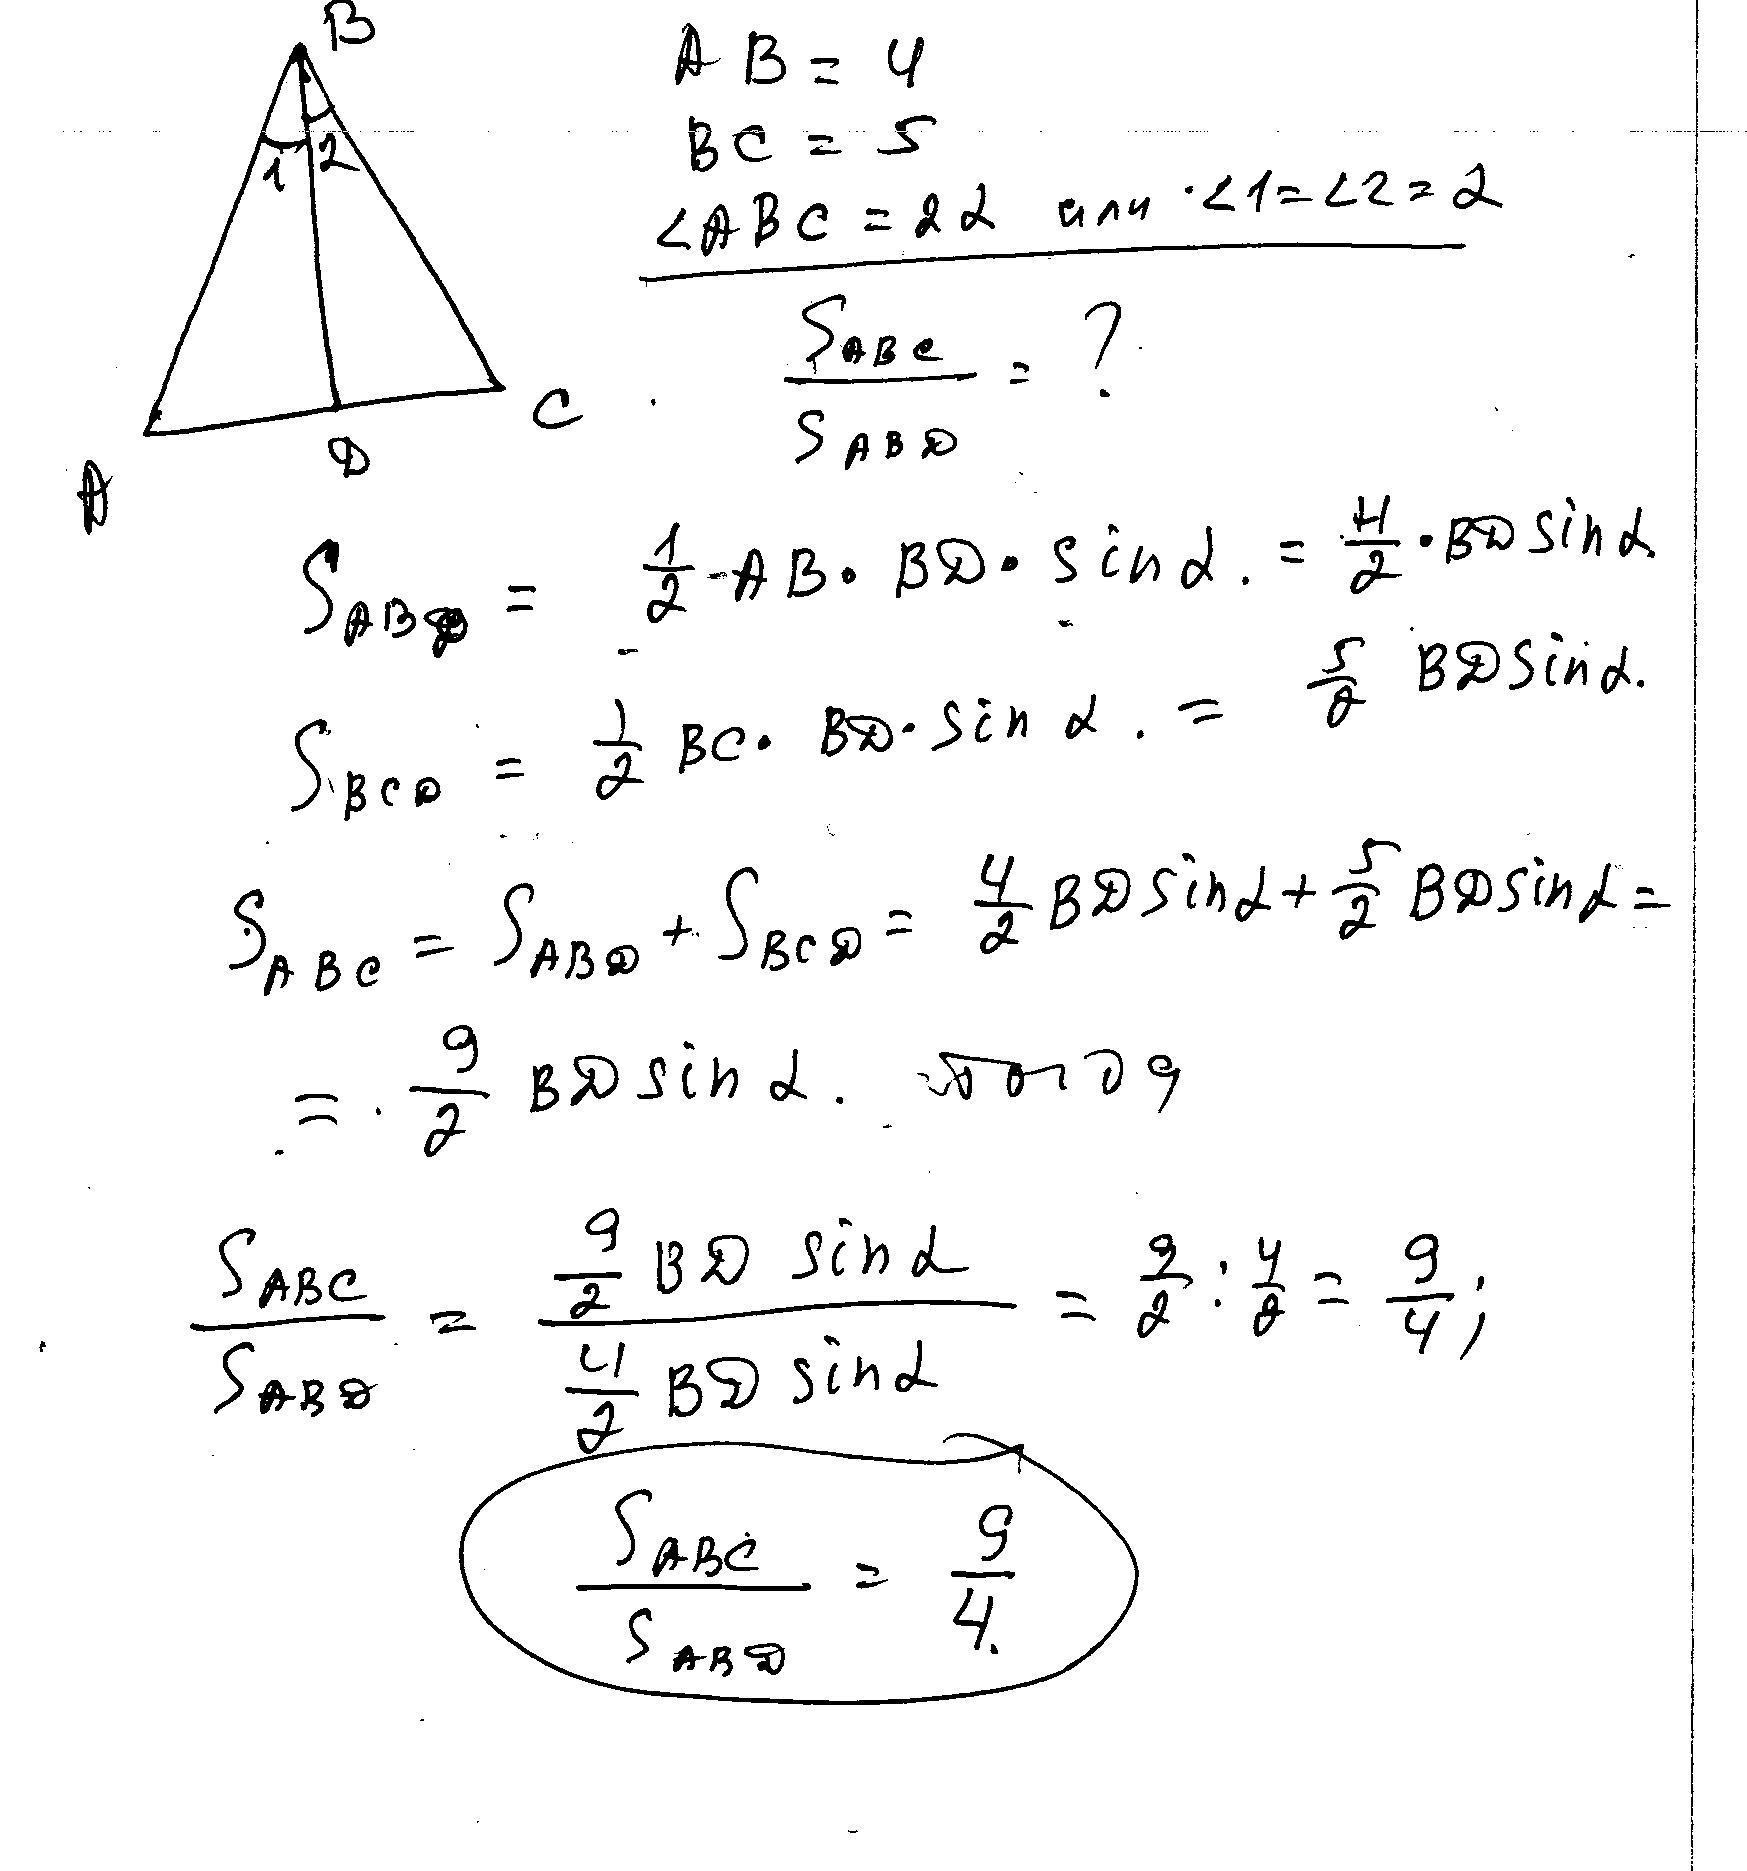 B
AB = 4
BC = 5
1 2
∠ABC = 2α или ∠1=∠2=α
S_ABC / S_ABD = ?
A D C
S_ABD = 1/2 AB · BD · sin α. = 4/2 · BD sin α
S_BCD = 1/2 BC · BD · sin α. = 5/2 BD sin α.
S_ABC = S_ABD + S_BCD = 4/2 BD sin α + 5/2 BD sin α =
= 9/2 BD sin α. тогда
S_ABC / S_ABD = 9/2 BD sin α / 4/2 BD sin α = 9/2 : 4/2 = 9/4;
S_ABC / S_ABD = 9/4.